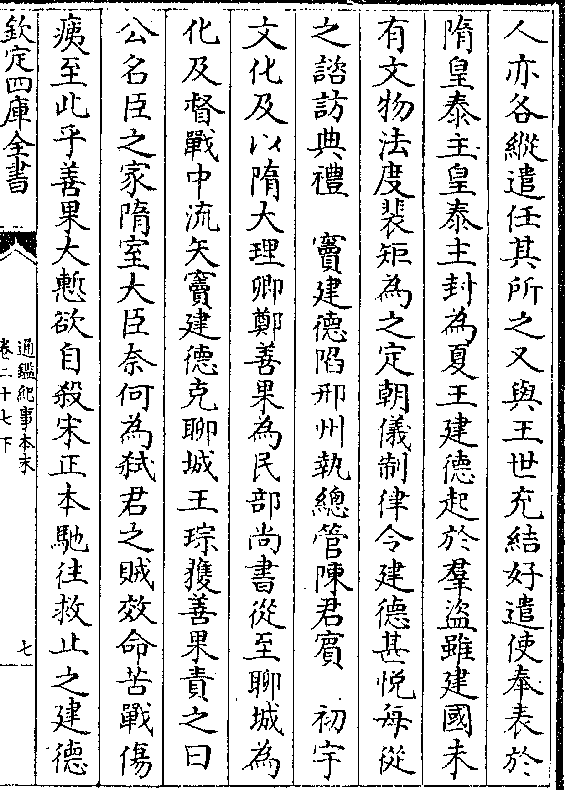 人亦各縱遣任其所之又與王世充結好遣使奉表於
隋皇泰主皇泰主封為夏王建德起於羣盜雖建國未
有文物法度裴矩為之定朝儀制律令建德甚悅每從
之諮訪典禮　竇建德陷邢州執總管陳君賓　初宇
文化及以隋大理卿鄭善果為民部尚書從至聊城為
化及督戰中流矢竇建德克聊城王琮獲善果責之曰
公名臣之家隋室大臣奈何為弑君之賊效命苦戰傷
痍至此乎善果大慙欲自殺宋正本馳往救止之建德
欽定四庫全書
通鑑紀事本末
卷二十七下
七